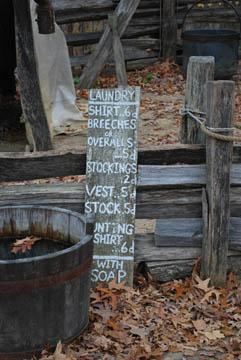 LAUNDRY
SHIRT..6d
BREECHES
or
OVERALLS
...5d
STOCKINGS
...2d
VEST..5d
STOCK.5d
HUNTING
SHIRT
...6d
WITH
SOAP